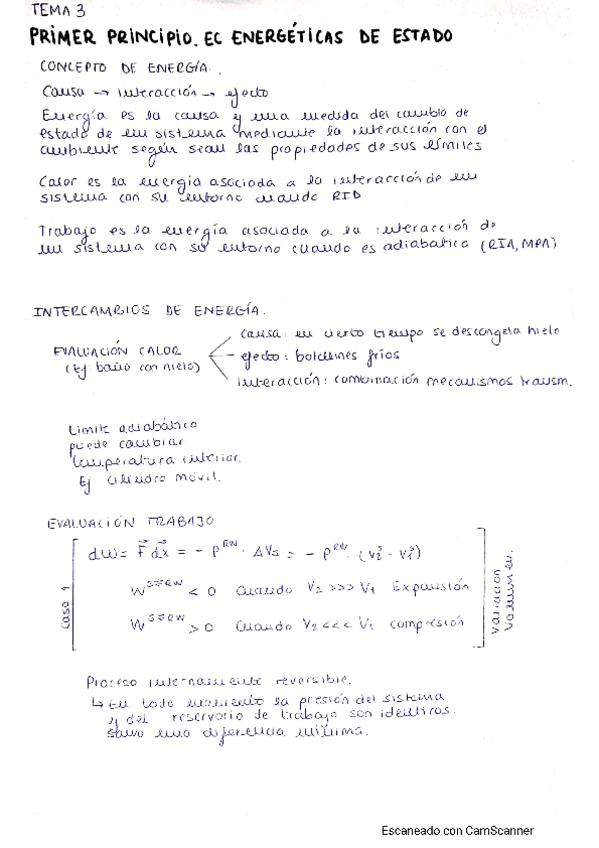 TEMA 3
PRIMER PRINCIPIO. EC ENERGÉTICAS DE ESTADO
CONCEPTO DE ENERGÍA.
Causa → interacción → efecto
Energía es la causa y una medida del cambio de
estado de un sistema mediante la interacción con el
ambiente según sean las propiedades de sus límites
Calor es la energía asociada a la interacción de un
sistema con su entorno cuando RID
Trabajo es la energía asociada a la interacción de
un sistema con su entorno cuando es adiabático (RIA, MPA)
INTERCAMBIOS DE ENERGÍA.
EVALUACIÓN CALOR
(Ej baño con hielo)
causa: en cierto tiempo se descongela hielo
efecto: botellines fríos
interacción: combinación mecanismos transm.
Limite adiabático
puede cambiar
temperatura interior.
Ej cilindro móvil.
EVALUACIÓN TRABAJO
Caso 1
dw = F dx = - P^RW · ΔVs = - P^RW · (V₂ˢ - V₁ˢ)
W^S⇄RW < 0 Cuando V₂ >>> V₁ Expansión
W^S⇄RW > 0 Cuando V₂ <<< V₁ compresión
Variación
Volumen.
Proceso internamente reversible.
↳ En todo momento la presión del sistema
y del reservorio de trabajo son idénticas.
salvo una diferencia mínima.
Escaneado con CamScanner